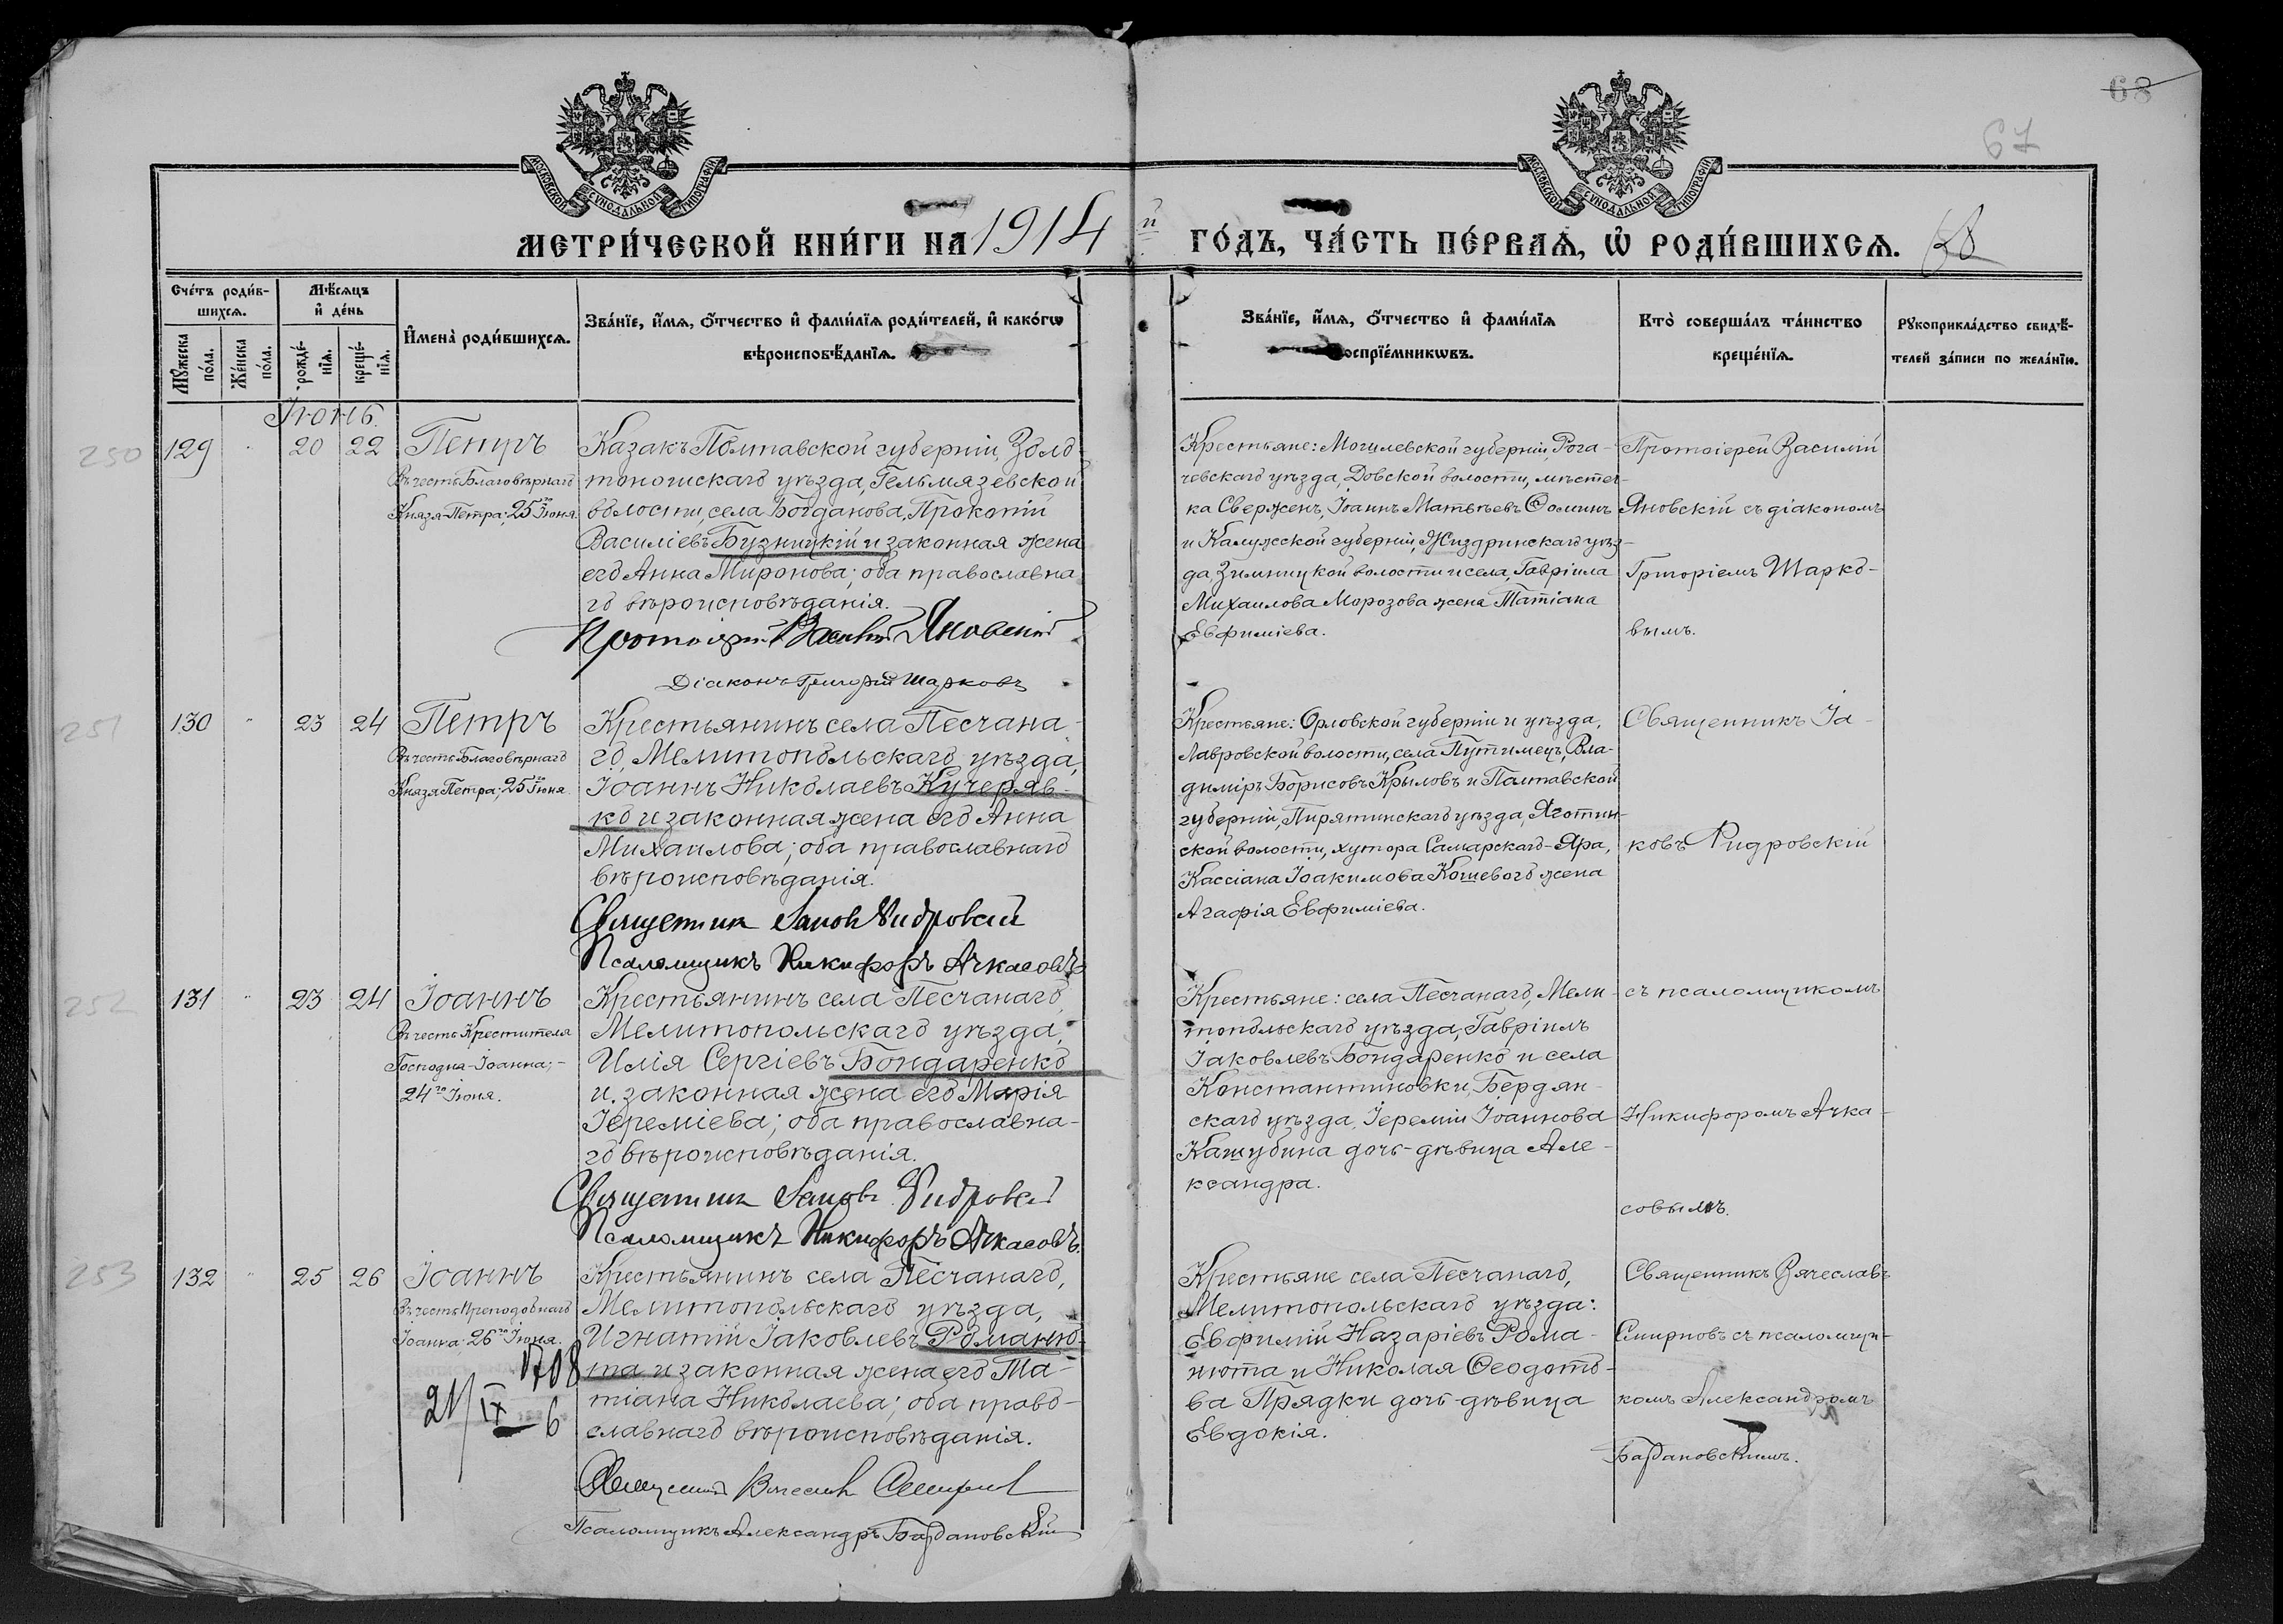 68
67
МОСКОВСКОЙ СѴНОДАЛЬНОЙ ТИПОГРАФІИ
МОСКОВСКОЙ СѴНОДАЛЬНОЙ ТИПОГРАФІИ
МЕТРИ́ЧЕСКОЙ КНИ́ГИ НА 1914 й ГО́ДЪ, ЧА́СТЬ ПЕ́РВАѦ, Ѽ РОДИ́ВШИХСѦ.
68
Сче́тъ роди́в-
шихсѧ.
Мꙋ́жеска по́ла.
Же́нска по́ла.
Мѣ́сѧцъ
и҆ де́нь
рожде́-нїѧ.
креще́-нїѧ.
И҆мена̀ роди́вшихсѧ.
Зва́нїе, и҆́мѧ, ѻ҆́тчество и҆ фами́лїѧ роди́телей, и҆ како́гѡ
вѣроисповѣ́данїѧ.
Зва́нїе, и҆́мѧ, ѻ҆́тчество и҆ фами́лїѧ
воспрїе́мникѡвъ.
Кто̀ соверша́лъ та́инство
креще́нїѧ.
Рꙋкоприкла́дство свидѣ́-
телей за́писи по жела́нїю.
Іюнь.
250
129
20
22
Петръ
Въ честь Благовѣрнаго
Князя Петра; 25го Іюня.
Казакъ Полтавской губерніи, Золо-
тоношскаго уѣзда, Гельмязевской
волости, села Богданова, Прокопій
Василіевъ Бузницкій и законная жена
его Анна Миронова; оба православна-
го вѣроисповѣданія.
Протоіерей Василій Яновскій
Діаконъ Григорій Шарковъ
Крестьяне: Могилевской губерніи, Рога-
чевскаго уѣзда, Довской волости, мѣстеч-
ка Сверженъ, Іоаннъ Матѳѣевъ Ѳоминъ
и Калужской губерніи, Жиздринскаго уѣз-
да, Зимницкой волости и села, Гавріила
Михаилова Морозова жена Татіана
Евфиміева.
Протоіерей Василій
Яновскій съ діакономъ
Григоріемъ Шарко-
вымъ.
251
130
23
24
Петръ
Въ честь Благовѣрнаго
Князя Петра; 25го Іюня.
Крестьянинъ села Песчана-
го, Мелитопольскаго уѣзда,
Іоаннъ Николаевъ Кучеряв-
ко и законная жена его Анна
Михаилова; оба православнаго
вѣроисповѣданія.
Священник Іаков Ридровскій
Псаломщикъ Никифоръ Ачкасовъ
Крестьяне: Орловской губерніи и уѣзда,
Лавровской волости, села Путимецъ, Вла-
диміръ Борисовъ Крыловъ и Полтавской
губерніи, Пирятинскаго уѣзда, Яготин-
ской волости, хутора Самарскаго-Яра,
Кассіана Іоакимова Кошевого жена
Агафія Евфиміева.
Священникъ Іа-
ковъ Ридровскій
252
131
23
24
Іоаннъ
Въ честь Крестителя
Господня-Іоанна;-
24го Іюня.
Крестьянинъ села Песчанаго,
Мелитопольскаго уѣзда,
Илія Сергіевъ Бондаренко
и законная жена его Марія
Іереміева; оба православна-
го вѣроисповѣданія.
Священник Іаков Ридровскій
Псаломщикъ Никифоръ Ачкасовъ.
Крестьяне: села Песчанаго, Мели-
топольскаго уѣзда, Гавріилъ
Іаковлевъ Бондаренко и села
Константиновки, Бердян-
скаго уѣзда, Іереміи Іоаннова
Кашубина дочь-дѣвица Але-
ксандра.
съ псаломщикомъ
Никифоромъ Ачка-
совымъ.
253
132
25
26
Іоаннъ
Въ честь Преподобнаго
Іоанна; 26го Іюня.
1708
21/IX 6
Крестьянинъ села Песчанаго,
Мелитопольскаго уѣзда,
Игнатій Іаковлевъ Романю-
та и законная жена его Та-
тіана Николаева; оба право-
славнаго вѣроисповѣданія.
Священник Вячеслав Смирнов
Псаломщикъ Александръ Багдановскій
Крестьяне села Песчанаго,
Мелитопольскаго уѣзда:
Евфимій Назаріевъ Рома-
нюта и Николая Ѳеодото-
ва Прядки дочь-дѣвица
Евдокія.
Священникъ Вячеславъ
Смирновъ съ псаломщи-
комъ Александромъ
Багдановскимъ.